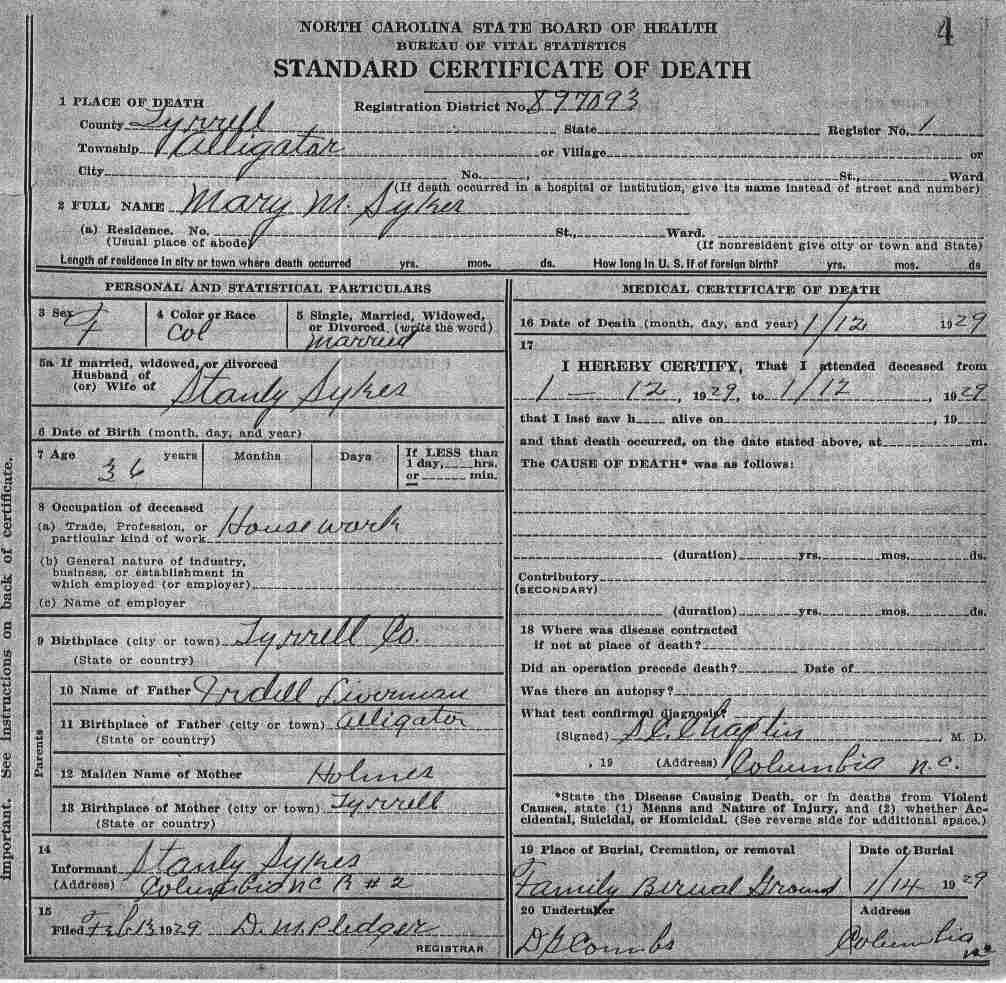 4
NORTH CAROLINA STATE BOARD OF HEALTH
BUREAU OF VITAL STATISTICS
STANDARD CERTIFICATE OF DEATH
1 PLACE OF DEATH Registration District No. 897093
County Tyrrell State Register No. 1
Township Alligator or Village or
City No. , St., Ward
(If death occurred in a hospital or institution, give its name instead of street and number)
2 FULL NAME Mary M. Sykes
(a) Residence. No. St., Ward.
(Usual place of abode) (If nonresident give city or town and State)
Length of residence in city or town where death occurred yrs. mos. ds. How long in U. S. if of foreign birth? yrs. mos. ds
PERSONAL AND STATISTICAL PARTICULARS
3 Sex F 4 Color or Race Col 5 Single, Married, Widowed,
or Divorced (write the word)
married
5a If married, widowed, or divorced
Husband of
(or) Wife of Stanly Sykes
6 Date of Birth (month, day, and year)
7 Age 36 years Months Days If LESS than
1 day, hrs.
or min.
8 Occupation of deceased
(a) Trade, Profession, or
particular kind of work House work
(b) General nature of industry,
business, or establishment in
which employed (or employer)
(c) Name of employer
9 Birthplace (city or town) Tyrrell Co.
(State or country)
Parents
10 Name of Father Liverman
11 Birthplace of Father (city or town) Alligator
(State or country)
12 Maiden Name of Mother Holmes
13 Birthplace of Mother (city or town) Tyrrell
(State or country)
14
Informant Stanly Sykes
(Address) Columbia NC R # 2
15
Filed Feb 13 1929 D. M. Pledger
REGISTRAR
MEDICAL CERTIFICATE OF DEATH
16 Date of Death (month, day, and year) 1/12 1929
17
I HEREBY CERTIFY, That I attended deceased from
1 - 12, 1929, to 1/12, 1929
that I last saw h alive on , 19
and that death occurred, on the date stated above, at m.
The CAUSE OF DEATH* was as follows:
(duration) yrs. mos. ds.
Contributory
(SECONDARY)
(duration) yrs. mos. ds.
18 Where was disease contracted
if not at place of death?
Did an operation precede death? Date of
Was there an autopsy?
What test confirmed diagnosis?
(Signed) S.C. Chaplin, M. D.
, 19 (Address) Columbia N.C.
*State the Disease Causing Death, or in deaths from Violent
Causes, state (1) Means and Nature of Injury, and (2) whether Ac-
cidental, Suicidal, or Homicidal. (See reverse side for additional space.)
19 Place of Burial, Cremation, or removal Date of Burial
Family Berual Ground 1/14 1929
20 Undertaker Address
D G Combs Columbia
NC
Important. See instructions on back of certificate.